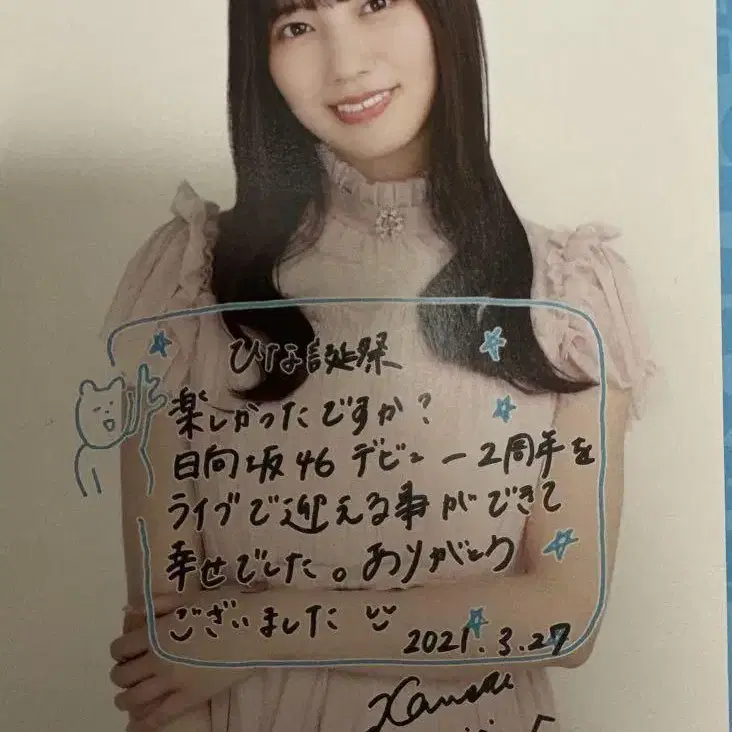 ひな誕祭
楽しかったですか？
日向坂46 デビュー2周年を
ライブで迎える事ができて
幸せでした。ありがとう
ございました
2021.3.27